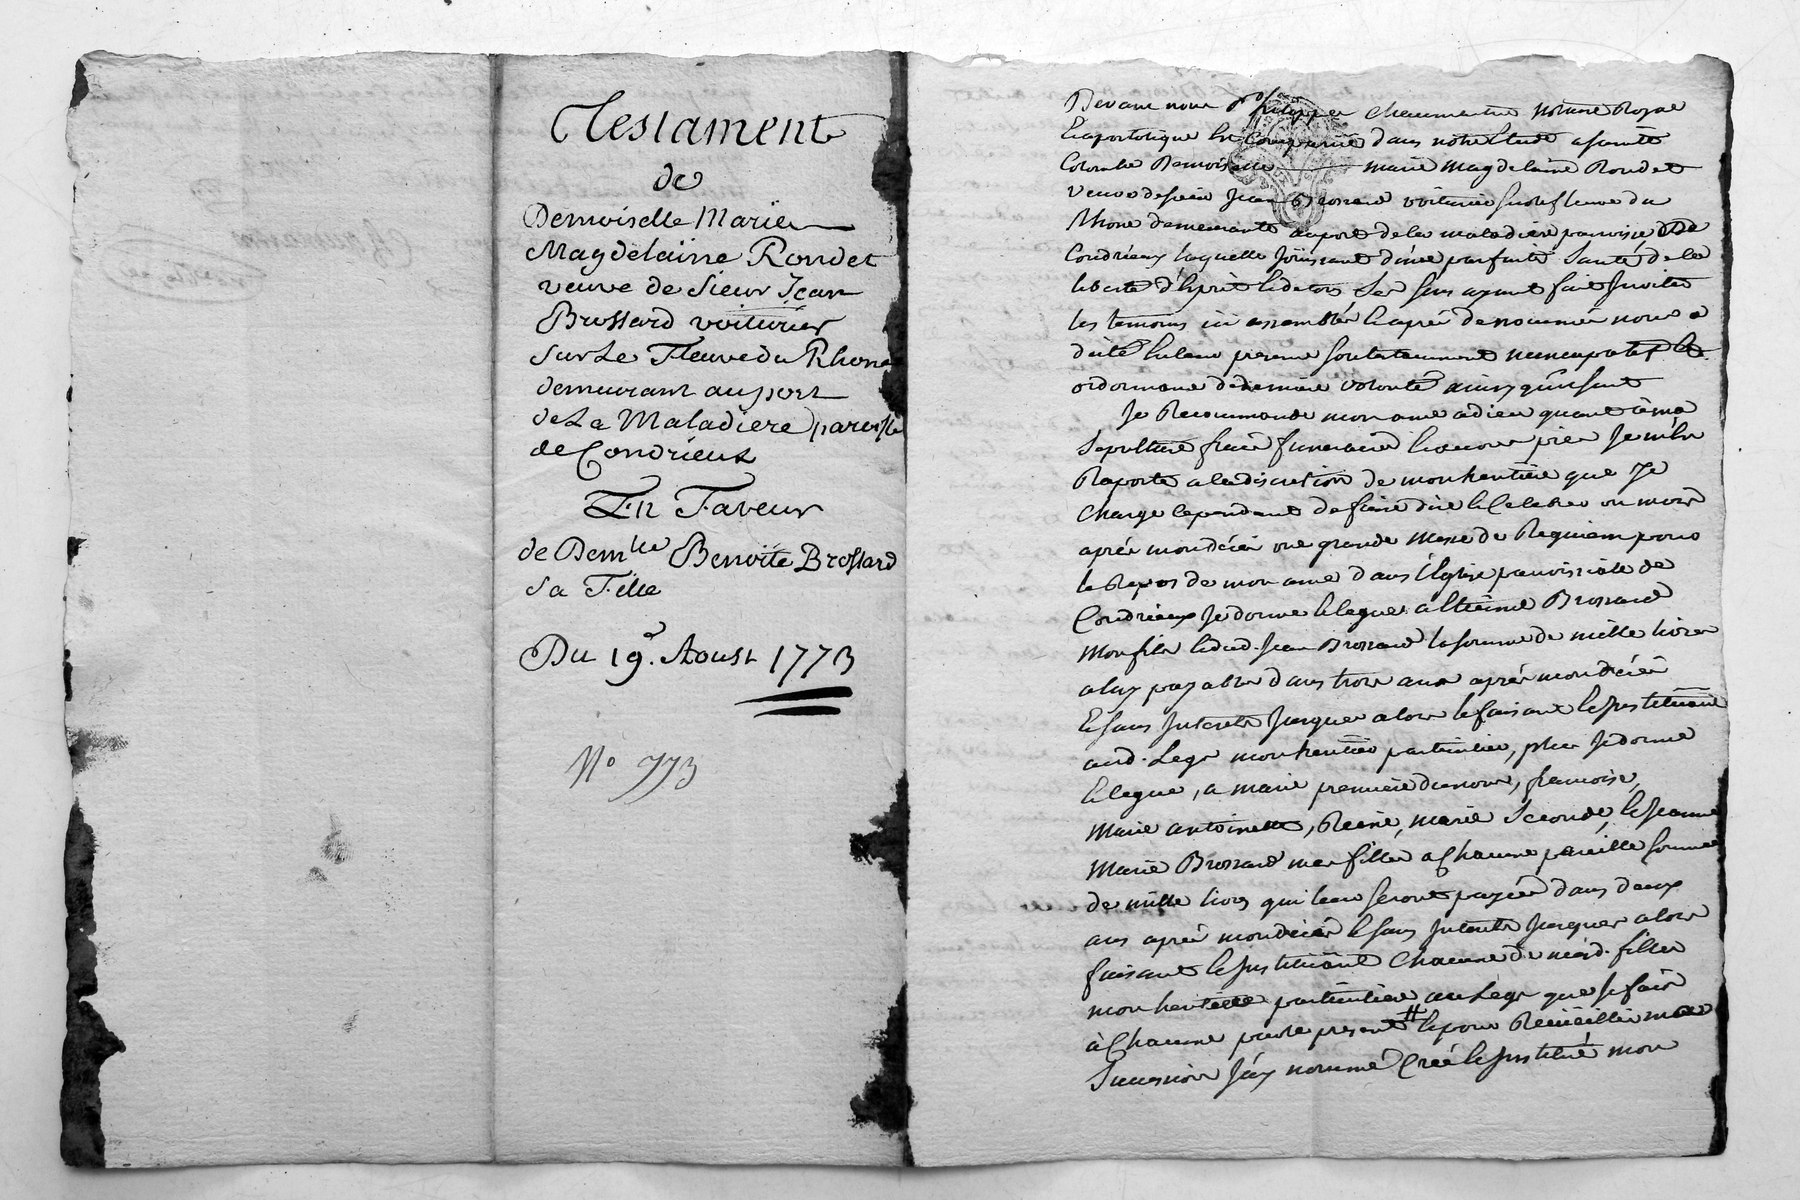 Testament
de
Demoiselle Marie
Magdelaine Rondet
veuve de Sieur Jean
Brossard voiturier
Sur Le Fleuve du Rhone
demeurant au port
de La Maladiere paroisse
de Condrieux
En Faveur
de Demlle Benoite Brossard
Sa Fille
Du 19e. Aoust 1773
No 773
Devant nous Philippe notaire Royal
Et apostolique Et dans notre Etude a sainte
Colombe Demoiselle marie magdelaine Rondet
veuve de sieur Jean Brossard voiturier sur le fleuve du
Rhone demeurante au port de la maladiere paroisse de
Condrieux laquelle Joüissant d'une parfaite Santé de la
liberté d'Esprit Et de tous Ses Sens ayant fait Inviter
les temoins ici assemblés Et aprés denommés nous a
dicté Son testament nuncupatif Et
ordonnance de derniere volonté ainsy qu'il suit
Je Recommande mon ame a dieu quant a ma
Sepulture frais funeraires Et oeuvres pies Je m'En
Raporte a la discretion de mon heritiere que Je
Charge Cependant de faire dire Et Celebrer un mois
aprés mon décés une grande Messe de Requiem pour
le Repos de mon ame dans l'Eglise paroissiale de
Condrieux Je donne Et legue a Etienne Brossard
Mon fils Et dud. Jean Brossard la somme de mille livres
a luy payable dans trois ans aprés mon décés
Et sans Interets Jusques alors Et faisant Et Instituant
aud. Legs mon heritier particulier, plus Je donne
Et legue, a marie premiere du nom, francoise,
Marie antoinette, Reine, marie Seconde, Et Jeanne
Marie Brossard mes filles a Chacune pareille Somme
de mille livres qui leur Seront payées dans deux
ans aprés mon décés Et sans Interets Jusques alors
faisant Et Instituant Chacune de mesd. filles
mon heritiere particuliere au Legs que Je fais
à Chacune par le present # Et pour Recueillir ma
Succession J'ay nommé Créé Et Institué mon